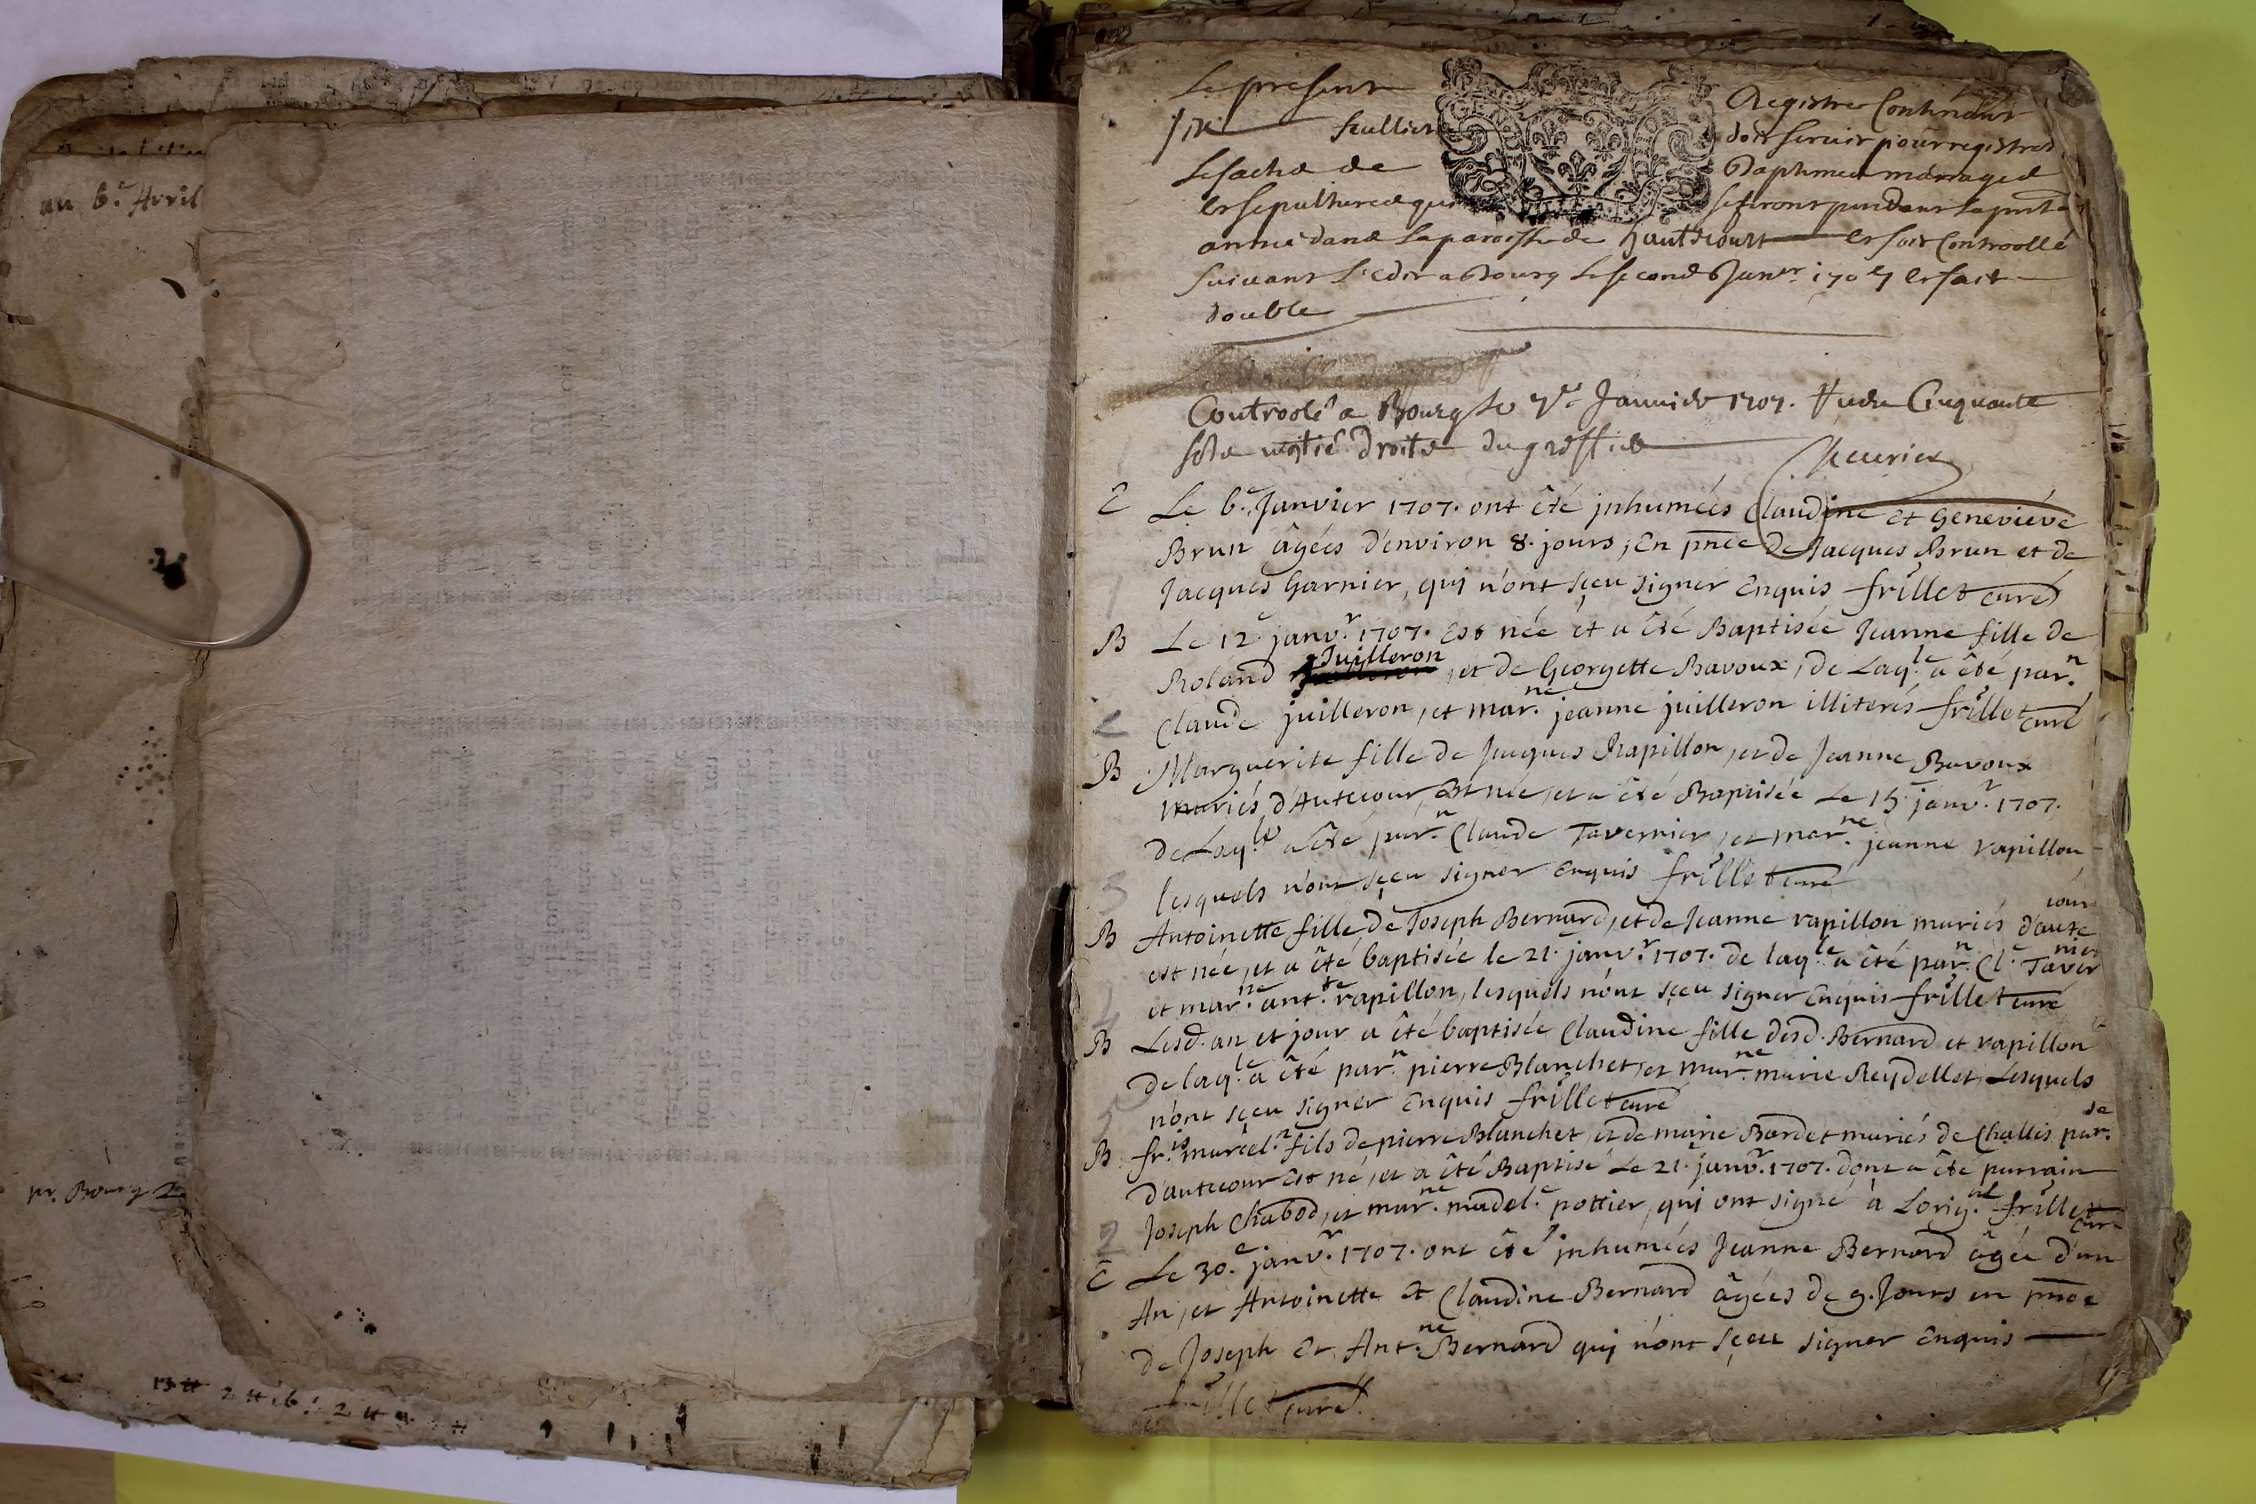 au 6.e Avril
pr. Bourg
Le present Registre Contenant
six feulliets doit servir pour registres
les actes de Baptmes mariages
et sepultures qui se feront pendant la pnte
année dans la paroisse de hautecourt et soit Controollé
suivant l'edit a Bourg le second Janer 1707 et fait
double
Controolé a Bourg le 7e Janvier 1707. Cinquante
sols droits du greffier
E Le 6.e Janvier 1707. ont êté jnhumées Claudine et Geneviéve
Brun âgées d'environ 8. jours, En pnce de Jacques Brun et de
Jacques Garnier, quj n'ont sçeu signer Enquis frillet curé
B Le 12.e janv.r 1707. Est née et a êté Baptisée Jeanne fille de
Roland Juilleron, et de Georgette Bavoux, de Laq.le a êté par.n
Claude juilleron, et mar.ne jeanne juilleron illiterés frillet curé
B Marguerite fille de Jacques Rapillon, et de Jeanne Bavoux
mariés d'Autecour, Est née, et a êté Baptisée Le 15. janv.r 1707.
de Laq.le a êté par.n Claude Tavernier, et mar.ne jeanne rapillon
lesquels n'ont sçeu signer Enquis frillet curé
B Antoinette fille de Joseph Bernard, et de Jeanne rapillon mariés d'autecour
est née, et a êté baptisée le 21. janv.r 1707. de laq.le a êté par.n Cl.e Tavernier
et mar.ne ant.te rapillon, lesquels n'ont sçeu signer Enquis frillet curé
B Lesd. an et jour a êté baptisée Claudine fille desd. Bernard et rapillon
de laq.le a êté par.n pierre Blanchet, et mar.ne marie Reydellet, Lesquels
n'ont sçeu signer Enquis frillet curé
B fr.is marcel.n fils de pierre Blanchet, et de marie Bardet mariés de Challis par.se
d'autecour Est né, et a êté Baptisé Le 21. janv.r 1707. dont a êté parrain
Joseph Chabod, et mar.ne madel.e pottier, quj ont signé à Lorig.al frillet curé
E Le 30.e janv.r 1707. ont êté jnhumées Jeanne Bernard âgée d'un
An, et Antoinette et Claudine Bernard âgées de 9. Jours en pnce
de Joseph Et Ant.ne Bernard quj n'ont sçeu signer Enquis
frillet curé